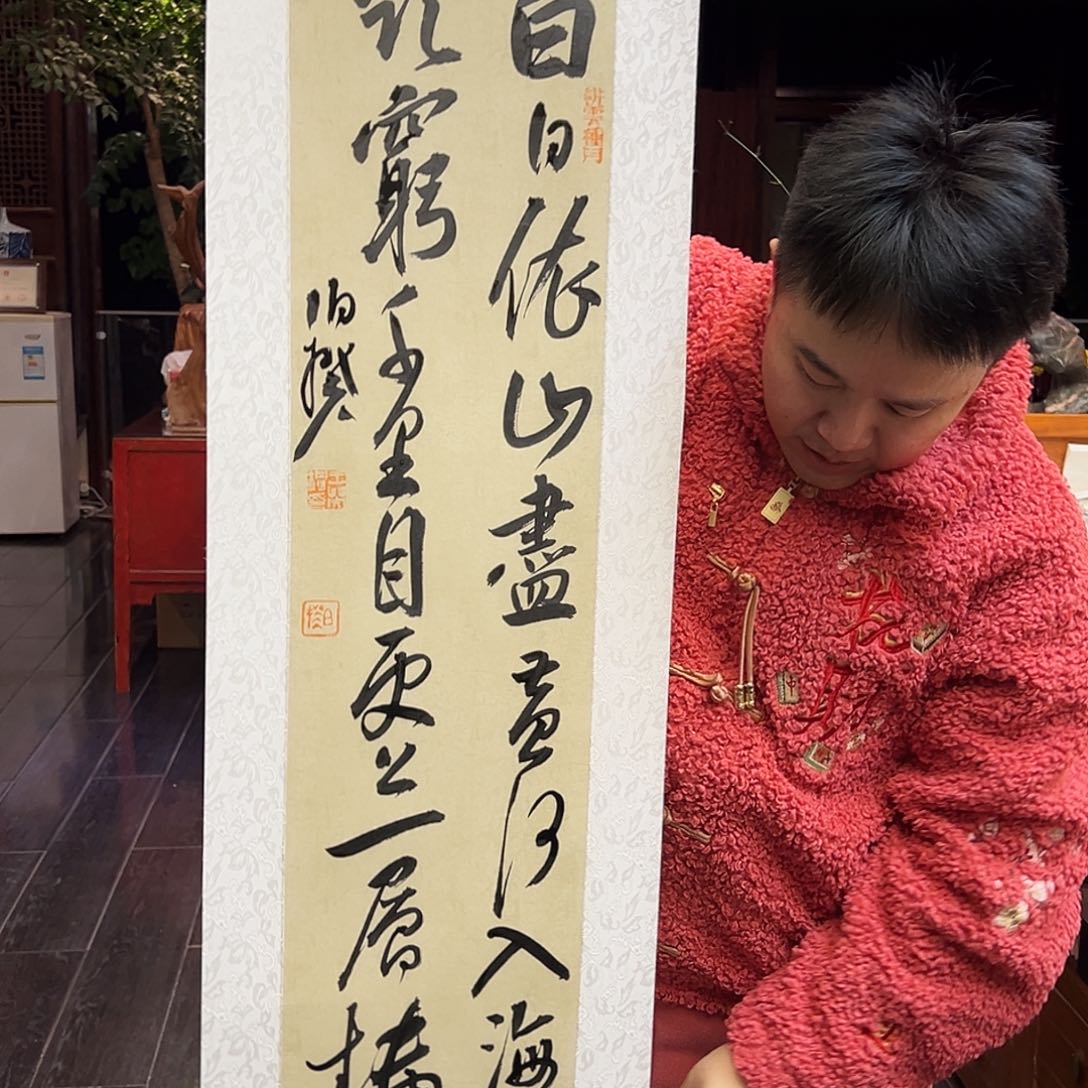 白日依山盡黃河入海
欲窮千里目更上一層樓